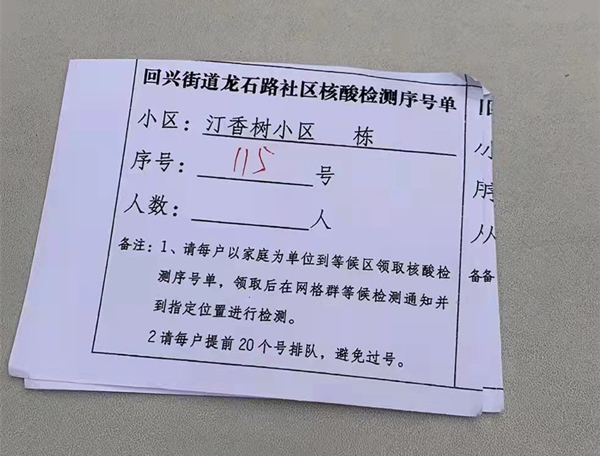 回兴街道龙石路社区核酸检测序号单
小区：汀香树小区 栋
序号：115号
人数：人
备注：1、请每户以家庭为单位到等候区领取核酸检
测序号单，领取后在网格群等候检测通知并
到指定位置进行检测。
2请每户提前20个号排队，避免过号。
小
序
从
备备